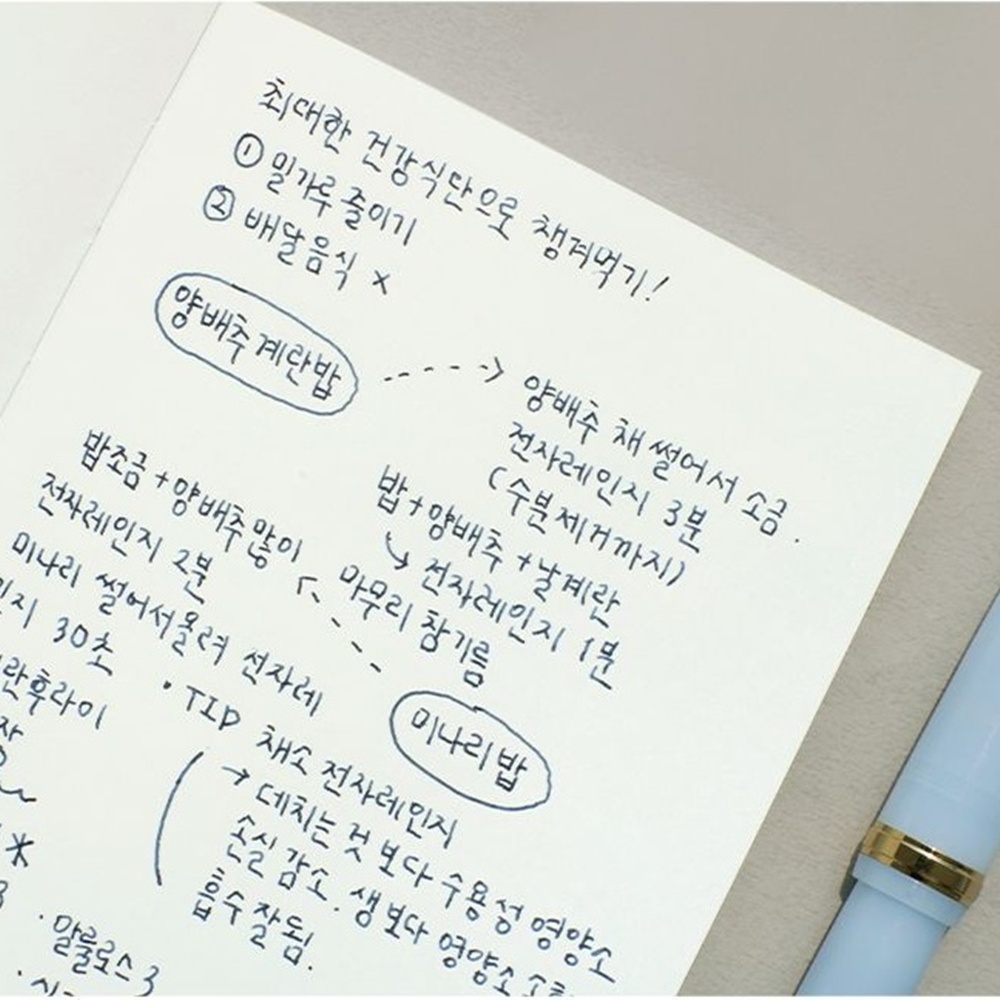 최대한 건강식단으로 챙겨먹기!
① 밀가루 줄이기
② 배달음식 x
양배추계란밥
양배추 채 썰어서 소금.
전자레인지 3분
(수분제거까지)
밥+양배추+날계란
전자레인지 1분
마무리 참기름
미나리밥
밥조금+양배추많이
전자레인지 2분
미나리 썰어서올려 전자레
인지 30초
란후라이
장
· TIP 채소 전자레인지
→ 데치는 것 보다 수용성 영양소
손실 감소. 생보다 영양소
흡수잘됨.
3
· 알룰로스 3